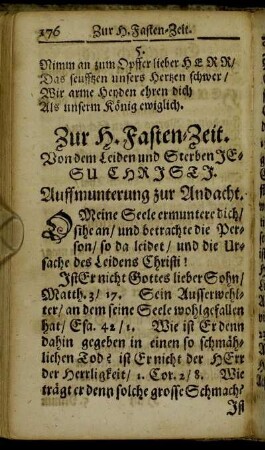 176 Zur H. Fasten-Zeit.
5.
Nimm an zum Opffer lieber HERR/
Das seufftzen unsers Hertzen schwer/
Wir arme Heyden ehren dich
Als unserm König ewiglich.
Zur H. Fasten-Zeit.
Von dem Leiden und Sterben JE-
SU CHRISTI.
Auffmunterung zur Andacht.
O Meine Seele ermuntere dich/
sihe an/ und betrachte die Per-
son/ so da leidet/ und die Ur-
sache des Leidens Christi!
Ist Er nicht Gottes lieber Sohn/
Matth. 3/ 17. Sein Ausserwehl-
ter/ an dem seine Seele wohlgefallen
hat/ Esa. 42/ 1. Wie ist Er denn
dahin gegeben in einen so schmäh-
lichen Tod? ist Er nicht der HErr
der Herrligkeit/ 1. Cor. 2/ 8. Wie
trägt er denn solche grosse Schmach?
Ist